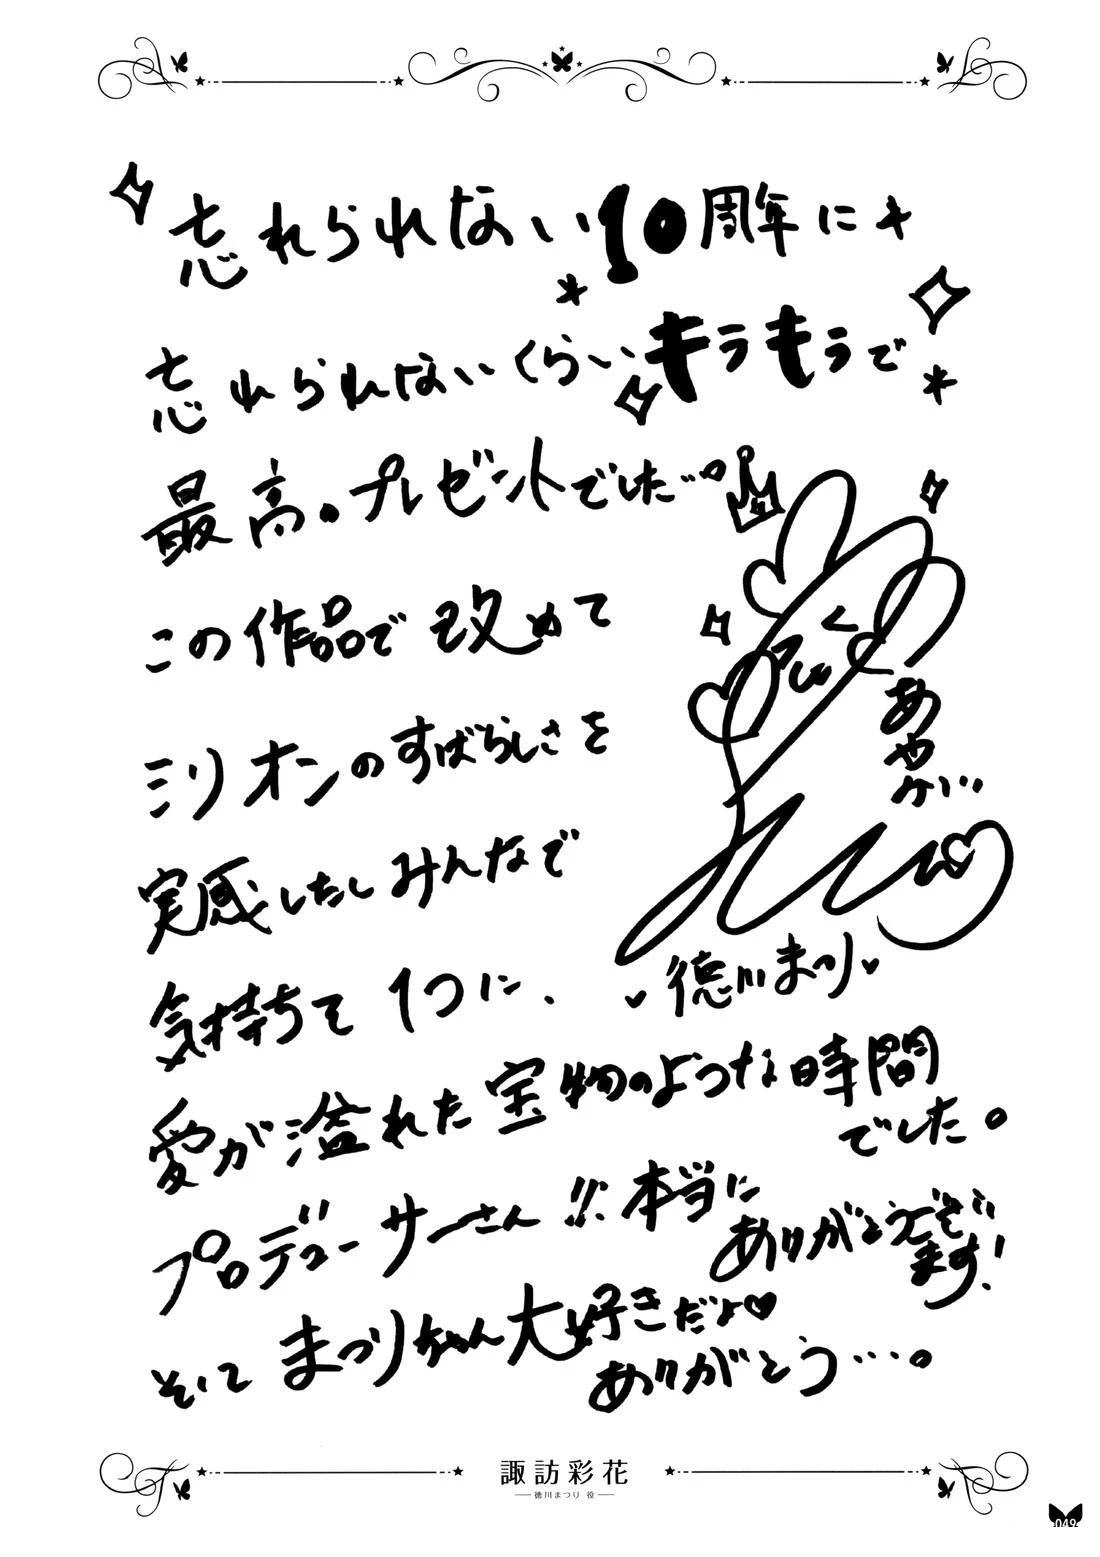 忘れられない10周年に
忘れられないくらいキラキラで
最高のプレゼントでした…。
この作品で改めて
ミリオンのすばらしさを
あやか…
実感したしみんなで
気持ちて1つに、
徳川まつり
愛が溢れた宝物のような時間
でした。
プロデューサーさん!!本当に
ありがとうござい
ます!
そして まつりちゃん大好きだよ♡
ありがとう…。
諏訪彩花
徳川まつり 役
049